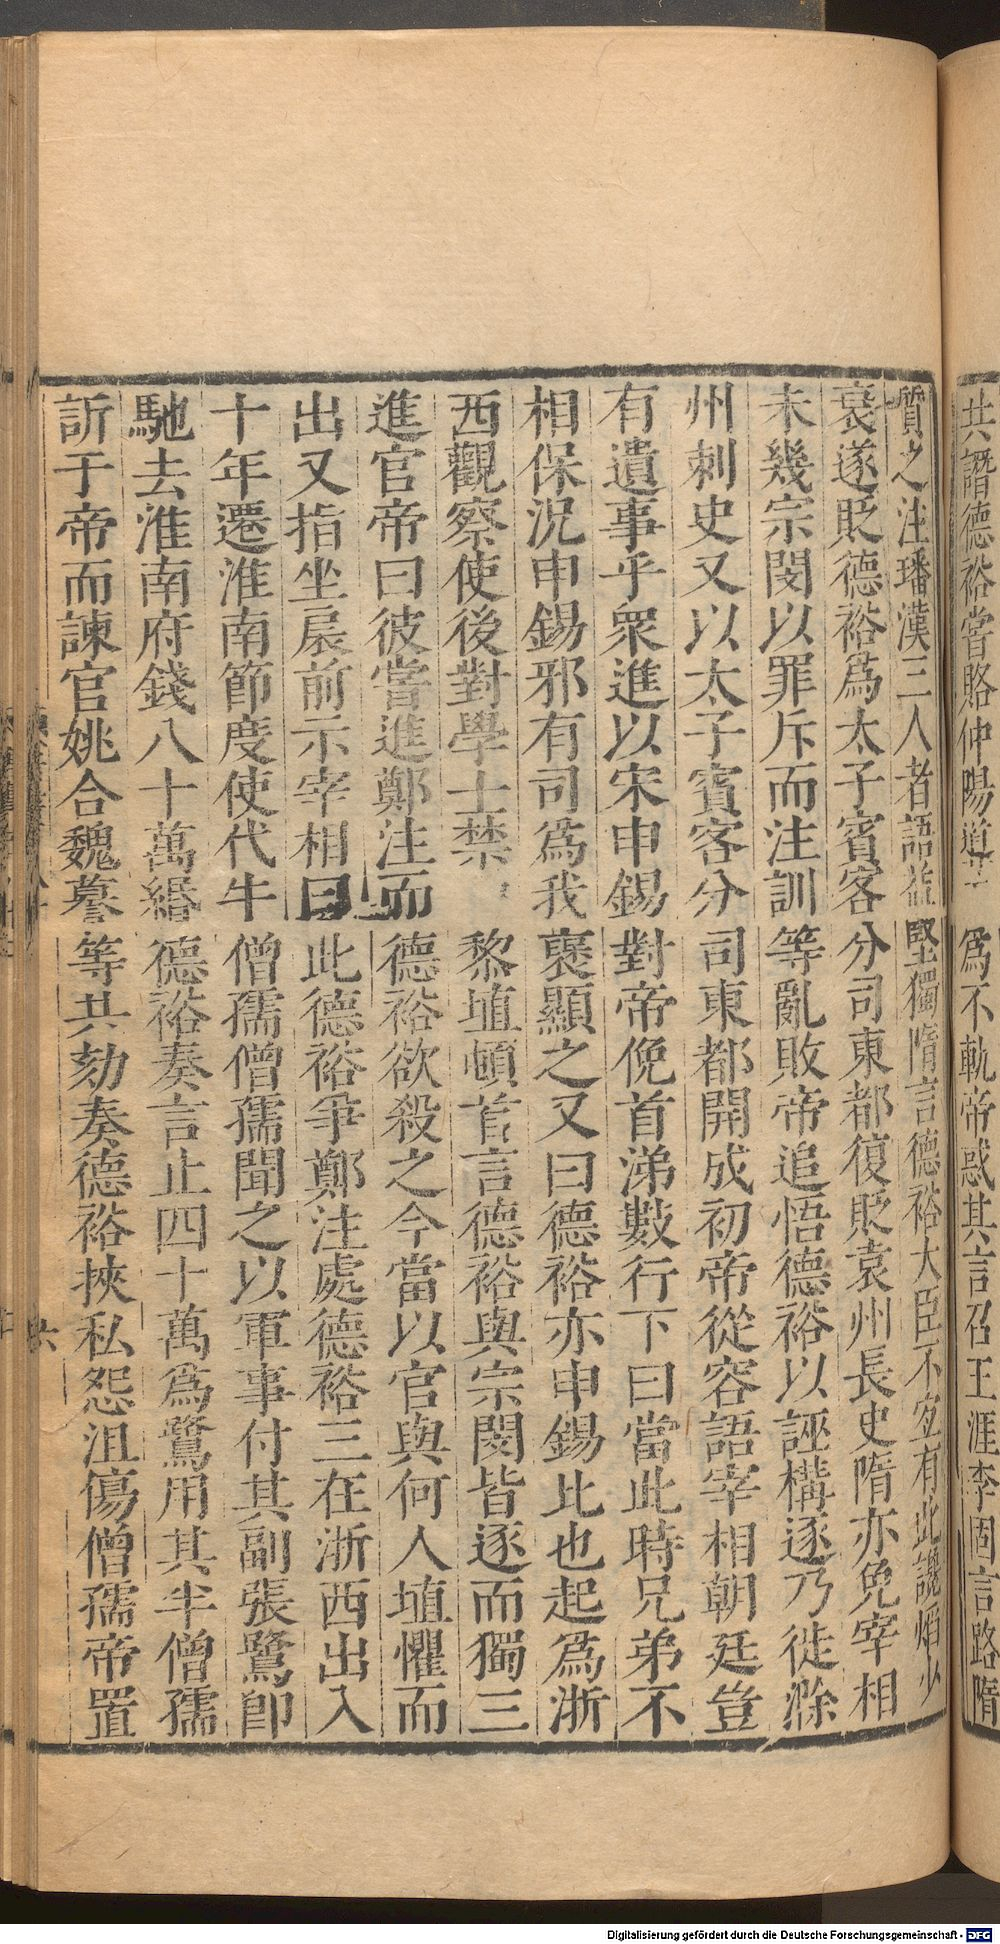 共譖德裕嘗賂仲陽道爲不軌帝惑其言召王涯李固言路隋
質之注璠漢三人者語益堅獨隋言德裕大臣不宜有此讒焰少
衰遂貶德裕爲太子賓客分司東都復貶袁州長史隋亦免宰相
未幾宗閔以罪斥而注訓等亂敗帝追悟德裕以誣構逐乃徙滁
州刺史又以太子賓客分司東都開成初帝從容語宰相朝廷豈
有遺事乎衆進以宋申錫對帝俛首涕數行下曰當此時兄弟不
相保況申錫邪有司爲我褒顯之又曰德裕亦申錫比也起爲浙
西觀察使後對學士禁黎埴頓首言德裕與宗閔皆逐而獨三
進官帝曰彼嘗進鄭注而德裕欲殺之今當以官與何人埴懼而
出又指坐扆前示宰相曰此德裕爭鄭注處德裕三在浙西出入
十年遷淮南節度使代牛僧孺僧孺聞之以軍事付其副張鷺卽
馳去淮南府錢八十萬緡德裕奏言止四十萬爲鷺用其半僧孺
訢于帝而諫官姚合魏謩等共劾奏德裕挾私怨沮傷僧孺帝置
六
Digitalisierung gefördert durch die Deutsche Forschungsgemeinschaft - DFG